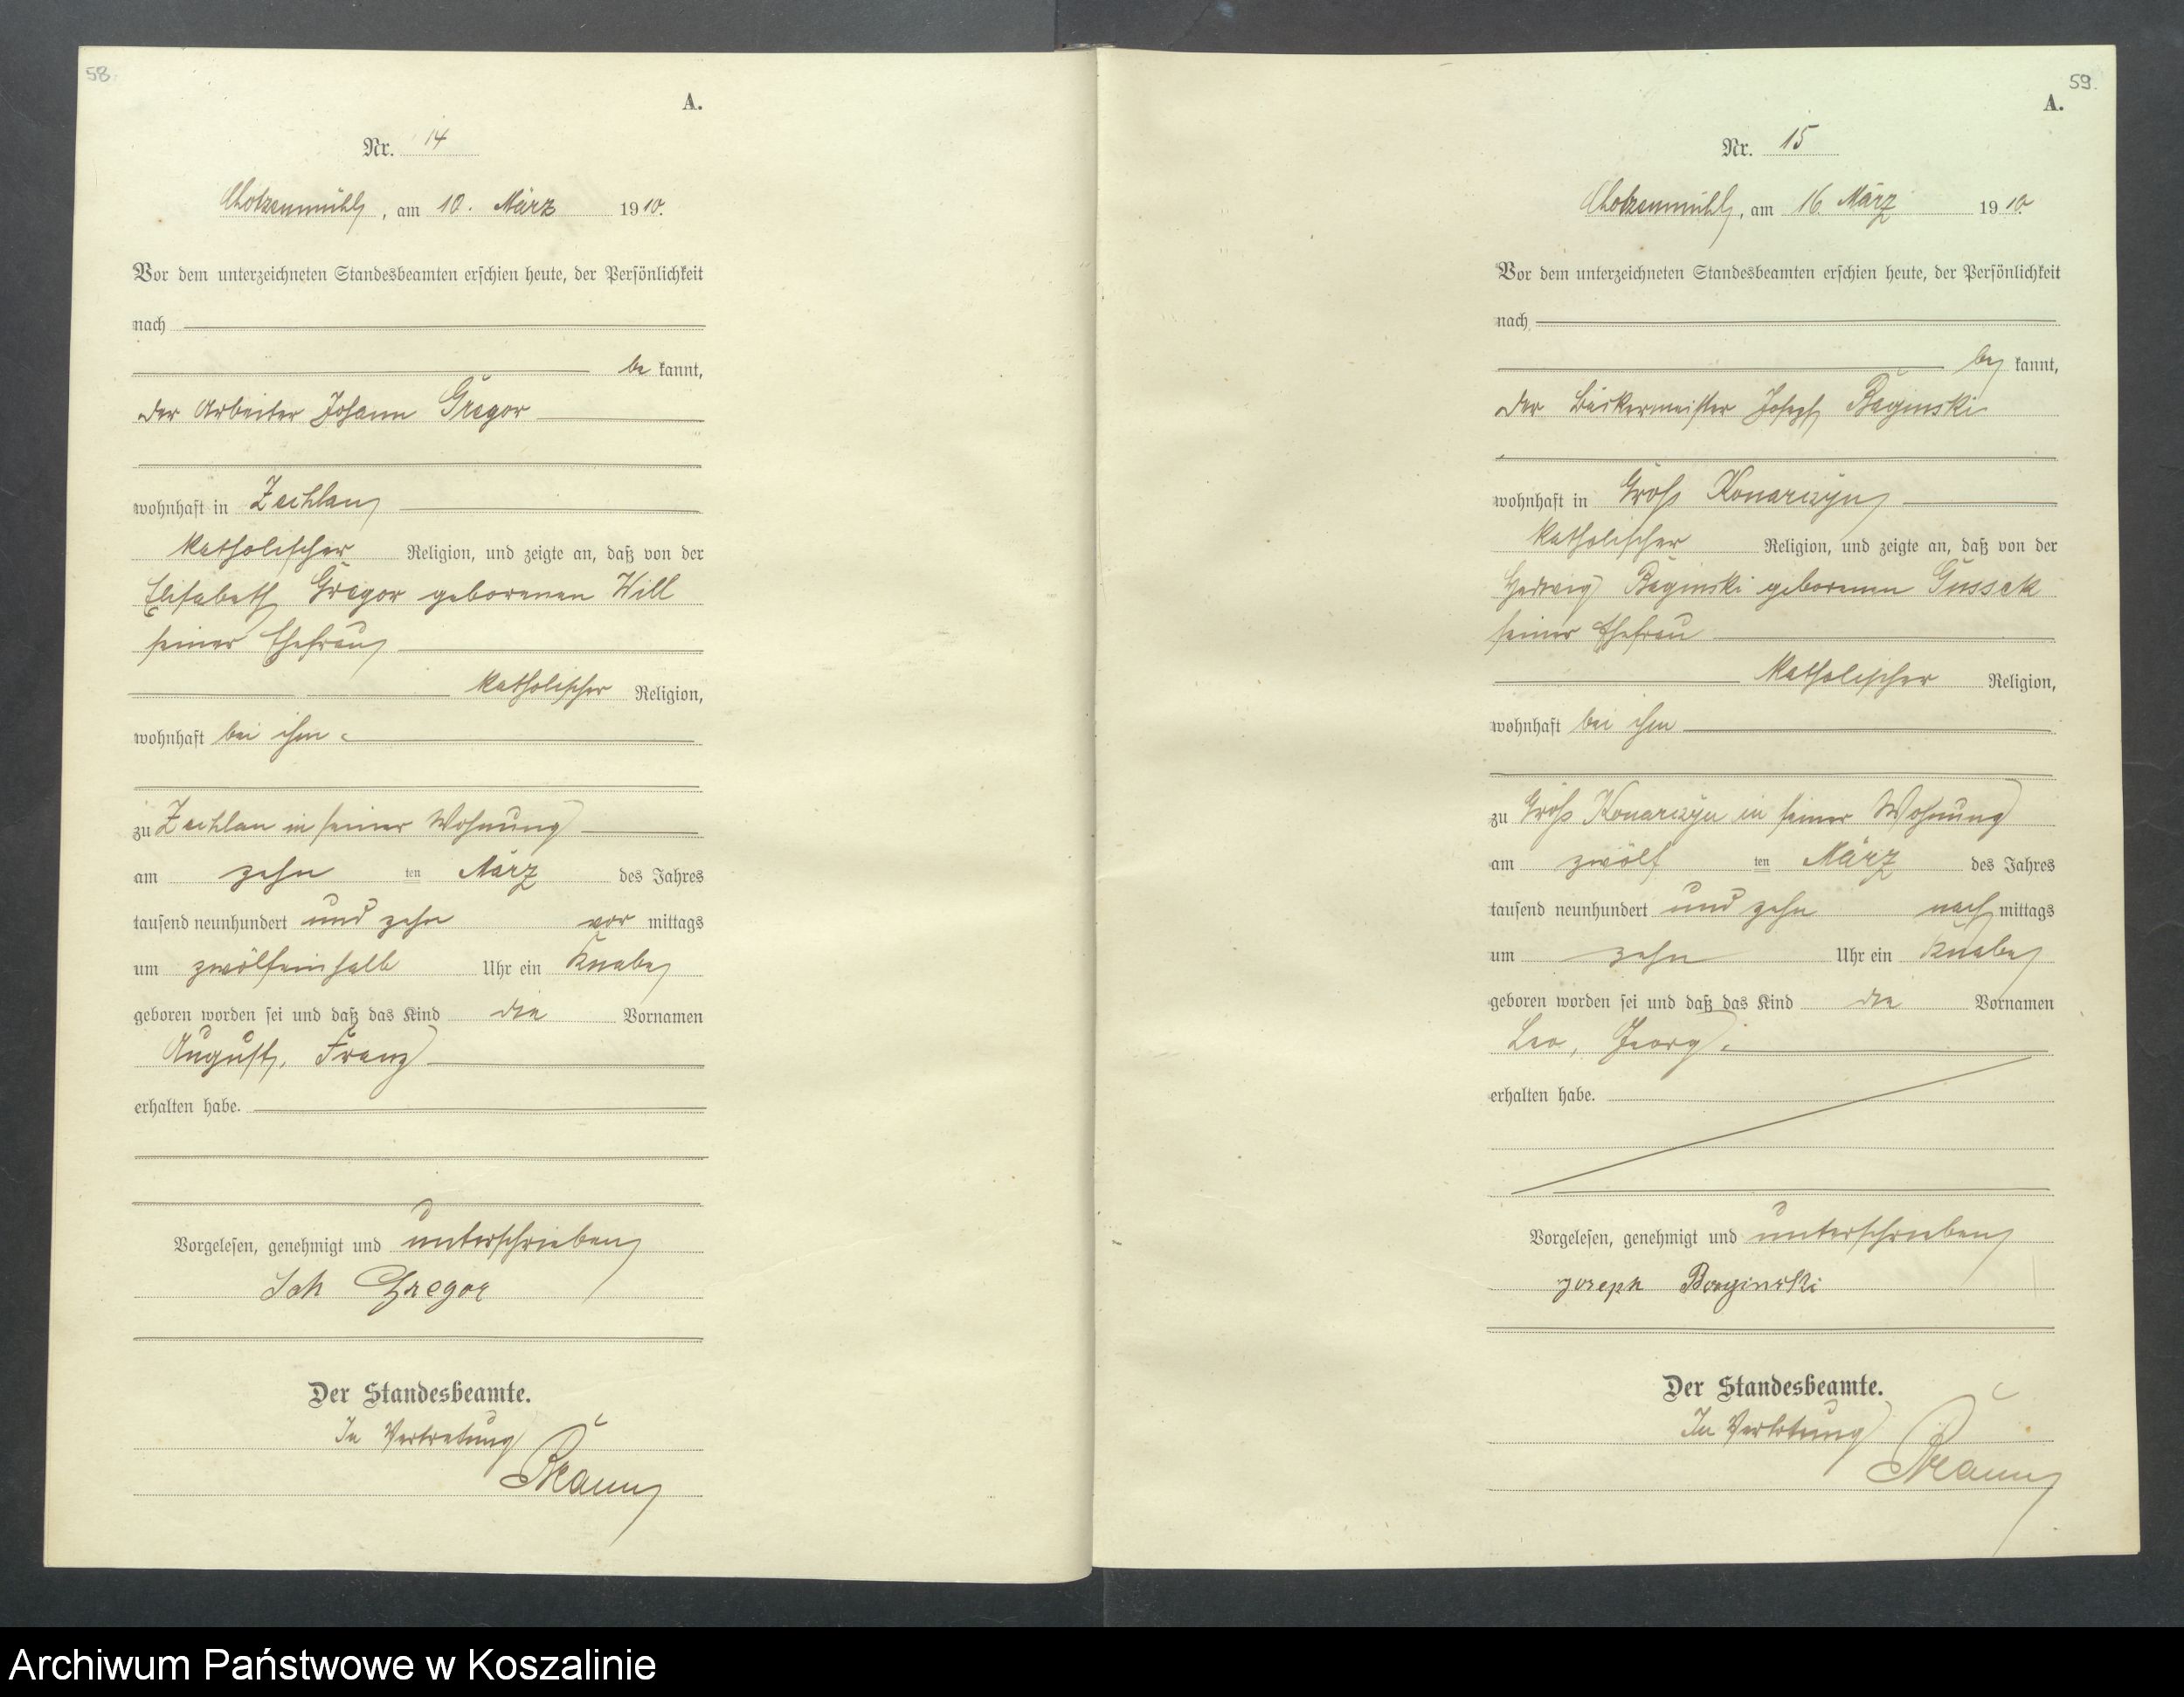 58.
A.
Nr. 14
Chotzenmühl, am 10. März 1910.
Vor dem unterzeichneten Standesbeamten erschien heute, der Persönlichkeit
nach
be kannt,
der Arbeiter Johann Gregor
wohnhaft in Zechlau
katholischer Religion, und zeigte an, daß von der
Elisabeth Gregor geborenen Will
seiner Ehefrau
katholischer Religion,
wohnhaft bei ihm
zu Zechlau in seiner Wohnung
am zehn ten März des Jahres
tausend neunhundert und zehn vor mittags
um zwölfeinhalb Uhr ein Knabe
geboren worden sei und daß das Kind die Vornamen
August, Franz
erhalten habe.
Vorgelesen, genehmigt und unterschrieben
Joh Gregor
Der Standesbeamte.
In Vertretung
59.
A.
Nr. 15
Chotzenmühl, am 16. März 1910.
Vor dem unterzeichneten Standesbeamten erschien heute, der Persönlichkeit
nach
be kannt,
der Bäckermeister Joseph Baginski
wohnhaft in Groß Konarczyn
katholischer Religion, und zeigte an, daß von der
Hedwig Baginski geborenen Gussek
seiner Ehefrau
katholischer Religion,
wohnhaft bei ihm
zu Groß Konarczyn in seiner Wohnung
am zwölf ten März des Jahres
tausend neunhundert und zehn nach mittags
um zehn Uhr ein Knabe
geboren worden sei und daß das Kind die Vornamen
Leo, Georg
erhalten habe.
Vorgelesen, genehmigt und unterschrieben
Joseph Baginski
Der Standesbeamte.
In Vertretung
Archiwum Państwowe w Koszalinie